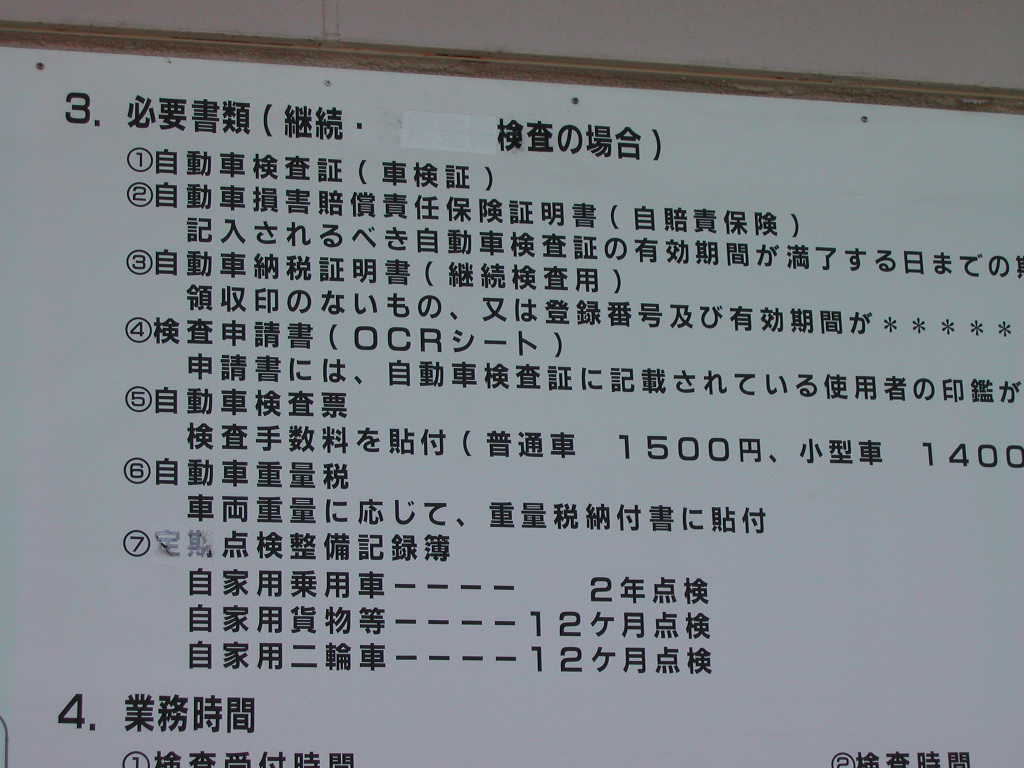 3. 必要書類(継続・ 検査の場合)
①自動車検査証(車検証)
②自動車損害賠償責任保険証明書(自賠責保険)
記入されるべき自動車検査証の有効期間が満了する日までの
③自動車納税証明書(継続検査用)
領収印のないもの、又は登録番号及び有効期間が*****
④検査申請書(OCRシート)
申請書には、自動車検査証に記載されている使用者の印鑑が
⑤自動車検査票
検査手数料を貼付(普通車 1500円、小型車 1400
⑥自動車重量税
車両重量に応じて、重量税納付書に貼付
⑦定期点検整備記録簿
自家用乗用車ーーーー 2年点検
自家用貨物等ーーーー12ケ月点検
自家用二輪車ーーーー12ケ月点検
4. 業務時間
①検査受付時間 ②検査時間